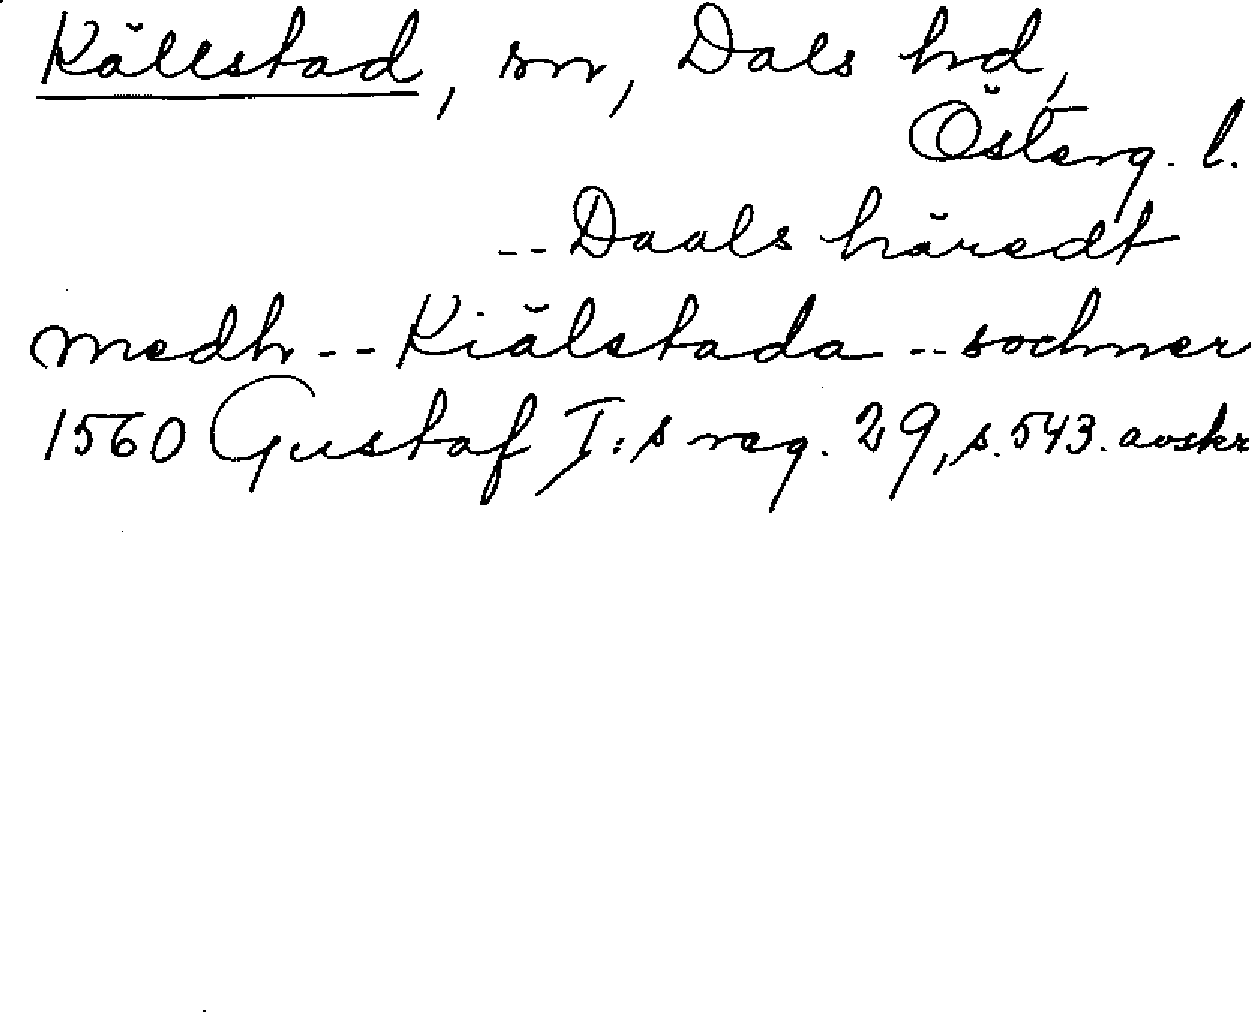 Källstad, sn, Dals hd,
Österg. l.
-- Daals häredt
medh -- Kiälstada -- sochner
1560 Gustaf I:s reg. 29, s. 543. avskr